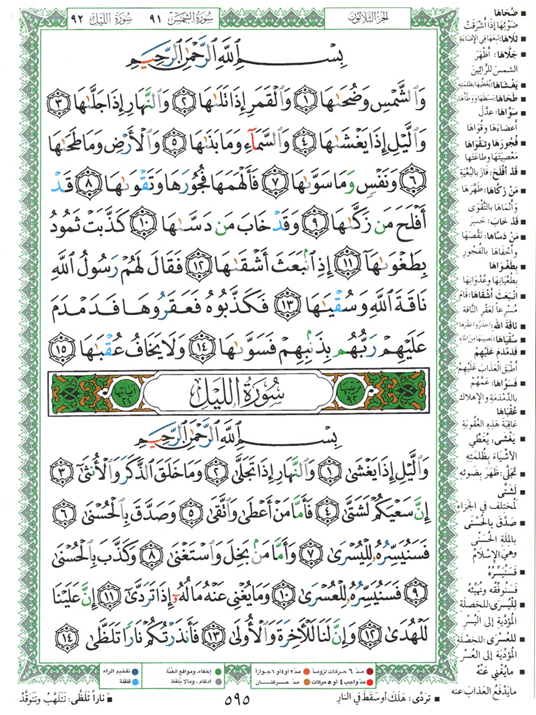 سُورَةُ اللَّيْل ٩٢
سُورَةُ الشَّمْس ٩١
الجزء الثلاثون
بِسْمِ ٱللَّهِ ٱلرَّحْمَٰنِ ٱلرَّحِيمِ
وَٱلشَّمْسِ وَضُحَىٰهَا ١ وَٱلْقَمَرِ إِذَا تَلَىٰهَا ٢ وَٱلنَّهَارِ إِذَا جَلَّىٰهَا ٣
وَٱلَّيْلِ إِذَا يَغْشَىٰهَا ٤ وَٱلسَّمَآءِ وَمَا بَنَىٰهَا ٥ وَٱلْأَرْضِ وَمَا طَحَىٰهَا
٦ وَنَفْسٍ وَمَا سَوَّىٰهَا ٧ فَأَلْهَمَهَا فُجُورَهَا وَتَقْوَىٰهَا ٨ قَدْ
أَفْلَحَ مَن زَكَّىٰهَا ٩ وَقَدْ خَابَ مَن دَسَّىٰهَا ١٠ كَذَّبَتْ ثَمُودُ
بِطَغْوَىٰهَآ ١١ إِذِ ٱنۢبَعَثَ أَشْقَىٰهَا ١٢ فَقَالَ لَهُمْ رَسُولُ ٱللَّهِ
نَاقَةَ ٱللَّهِ وَسُقْيَٰهَا ١٣ فَكَذَّبُوهُ فَعَقَرُوهَا فَدَمْدَمَ
عَلَيْهِمْ رَبُّهُم بِذَنۢبِهِمْ فَسَوَّىٰهَا ١٤ وَلَا يَخَافُ عُقْبَٰهَا ١٥
سُورَةُ اللَّيْل
بِسْمِ ٱللَّهِ ٱلرَّحْمَٰنِ ٱلرَّحِيمِ
وَٱلَّيْلِ إِذَا يَغْشَىٰ ١ وَٱلنَّهَارِ إِذَا تَجَلَّىٰ ٢ وَمَا خَلَقَ ٱلذَّكَرَ وَٱلْأُنثَىٰٓ ٣
إِنَّ سَعْيَكُمْ لَشَتَّىٰ ٤ فَأَمَّا مَنْ أَعْطَىٰ وَٱتَّقَىٰ ٥ وَصَدَّقَ بِٱلْحُسْنَىٰ ٦
فَسَنُيَسِّرُهُۥ لِلْيُسْرَىٰ ٧ وَأَمَّا مَنۢ بَخِلَ وَٱسْتَغْنَىٰ ٨ وَكَذَّبَ بِٱلْحُسْنَىٰ
٩ فَسَنُيَسِّرُهُۥ لِلْعُسْرَىٰ ١٠ وَمَا يُغْنِى عَنْهُ مَالُهُۥٓ إِذَا تَرَدَّىٰٓ ١١ إِنَّ عَلَيْنَا
لَلْهُدَىٰ ١٢ وَإِنَّ لَنَا لَلْءَاخِرَةَ وَٱلْأُولَىٰ ١٣ فَأَنذَرْتُكُمْ نَارًا تَلَظَّىٰ ١٤
ضُحَاهَا
ضَوْئِهَا إِذَا أَشْرَقَتْ
تَلَاهَا: تَبِعَهَا فِي الإضاءة
جَلَّاهَا: أَظْهَرَ
الشمسَ للرَّائين
يَغْشَاهَا: يُغَطِّيهَا بظلمته
طَحَاهَا: بَسَطَهَا ووطَّأها
سَوَّاهَا: عَدَّلَ
أعضاءَهَا وقُوَاهَا
فُجُورَهَا وَتَقْوَاهَا
مَعْصِيَتَهَا وَطَاعَتَهَا
قَدْ أَفْلَحَ: فَازَ بِالْبُغْيَة
مَنْ زَكَّاهَا: طَهَّرَهَا
وأنْمَاهَا بِالتَّقْوَى
قَدْ خَابَ: خَسِرَ
مَنْ دَسَّاهَا: نَقَّصَهَا
وأخفاها بالفُجُور
بِطَغْوَاهَا
بِطُغْيَانِهَا وعُدْوانِهَا
انْبَعَثَ أَشْقَاهَا: قَامَ
مُسْرِعًا لِعَقْرِ النَّاقَة
نَاقَةَ اللهِ: احذَرُوا عَقْرَهَا
سُقْيَاهَا: نَصِيبَهَا مِنَ الماء
فَدَمْدَمَ عَلَيْهِمْ
أَطْبَقَ العَذَابَ عَلَيْهِمْ
فَسَوَّاهَا: عَمَّهُمْ
بالدَّمْدَمَة والإهلاك
عُقْبَاهَا
عَاقِبَةَ هَذِهِ العُقُوبَة
يَغْشَى: يُغَطِّي
الأشْيَاءَ بِظُلْمَتِهِ
تَجَلَّى: ظَهَرَ بِضَوْئِهِ
لَشَتَّى
لَمُخْتَلِفٌ فِي الجَزَاء
صَدَّقَ بِالْحُسْنَى
بِالمِلَّةِ الحُسْنَى
وَهِيَ الإسْلَامُ
فَسَنُيَسِّرُهُ
فَسَنُوَفِّقُهُ ونُهَيِّئُهُ
لِلْيُسْرَى: لِلخَصْلَة
المُؤَدِّيَةِ إِلَى اليُسْرِ
لِلْعُسْرَى: للخَصْلَة
المُؤَدِّيَةِ إِلَى العُسْرِ
مَا يُغْنِي عَنْهُ
مَا يَدْفَعُ العَذَابَ عَنْهُ
مدّ ٦ حركات لزوماً
مدّ ٢ او ٤ او ٦ جوازاً
إخفاء، ومواقع الغُنَّة
تفخيم الراء
مدّ واجب ٤ او ٥ حركات
مدّ حركتان
ادغام، ومالا يُلفَظ
قلقلة
تَرَدَّى: هَلَكَ أو سَقَطَ في النَّارِ
٥٩٥
نَاراً تَلَظَّى: تَتَلَهَّبُ وتَتَوَقَّدُ